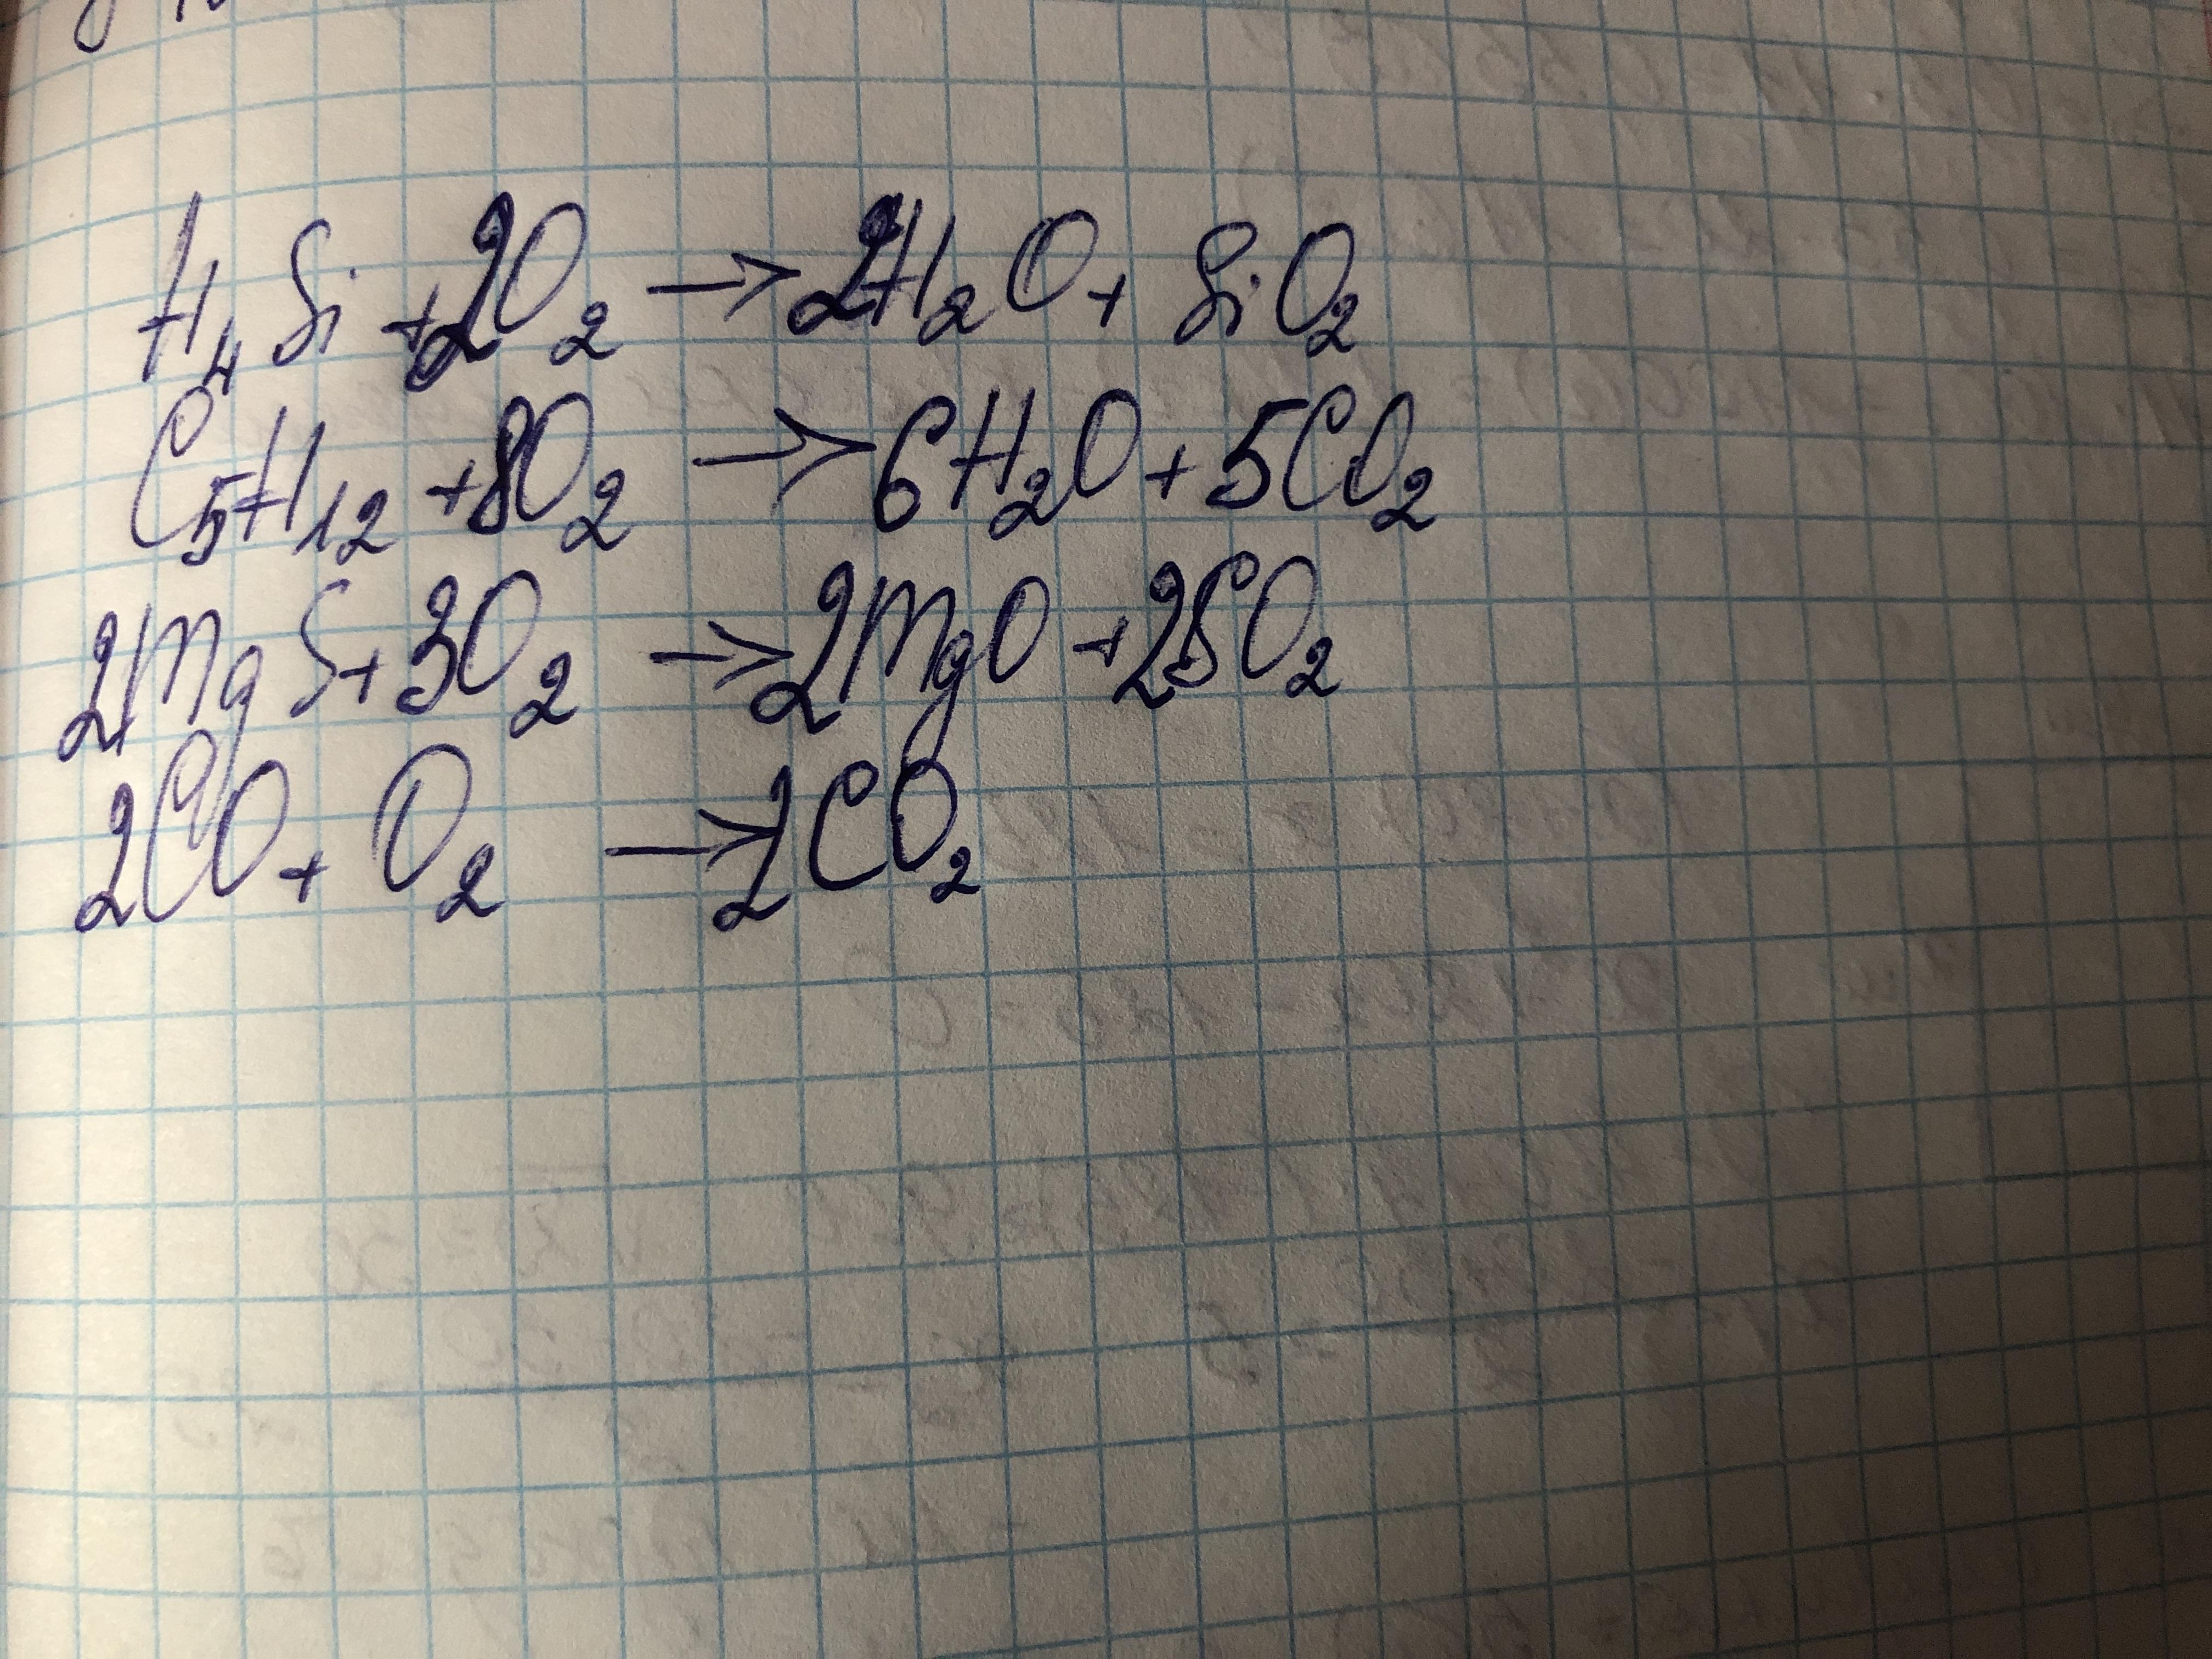 H₄Si + 2O₂ → 2H₂O + SiO₂
C₅H₁₂ + 8O₂ → 6H₂O + 5CO₂
2MgS + 3O₂ → 2MgO + 2SO₂
2CO + O₂ → 2CO₂